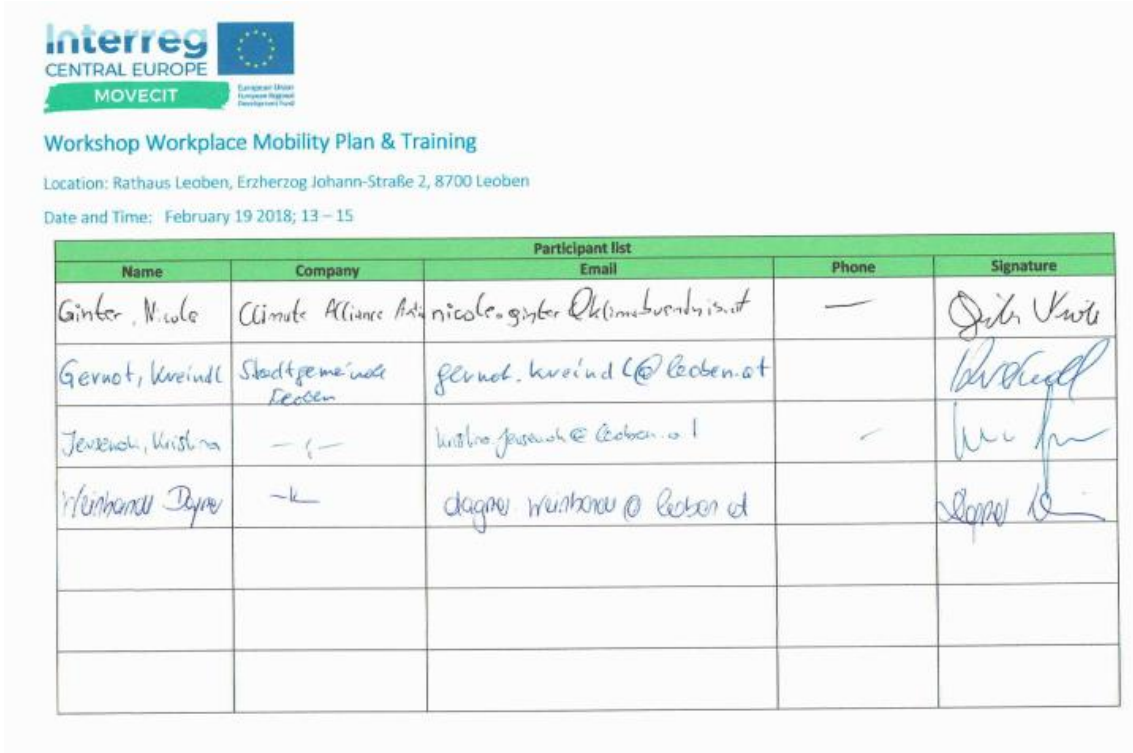 Interreg
CENTRAL EUROPE
MOVECIT
European Union
European Regional
Development Fund
Workshop Workplace Mobility Plan & Training
Location: Rathaus Leoben, Erzherzog Johann-Straße 2, 8700 Leoben
Date and Time: February 19 2018; 13 – 15
Participant list
Name Company Email Phone Signature
Ginter, Nicole Climate Alliance nicole.ginter@klimabuendnis.at —
Gernot, Kreindl Stadtgemeinde Leoben gernot.kreindl@leoben.at
Kristina @leoben.at
Weinhandl Dagmar @leoben.at